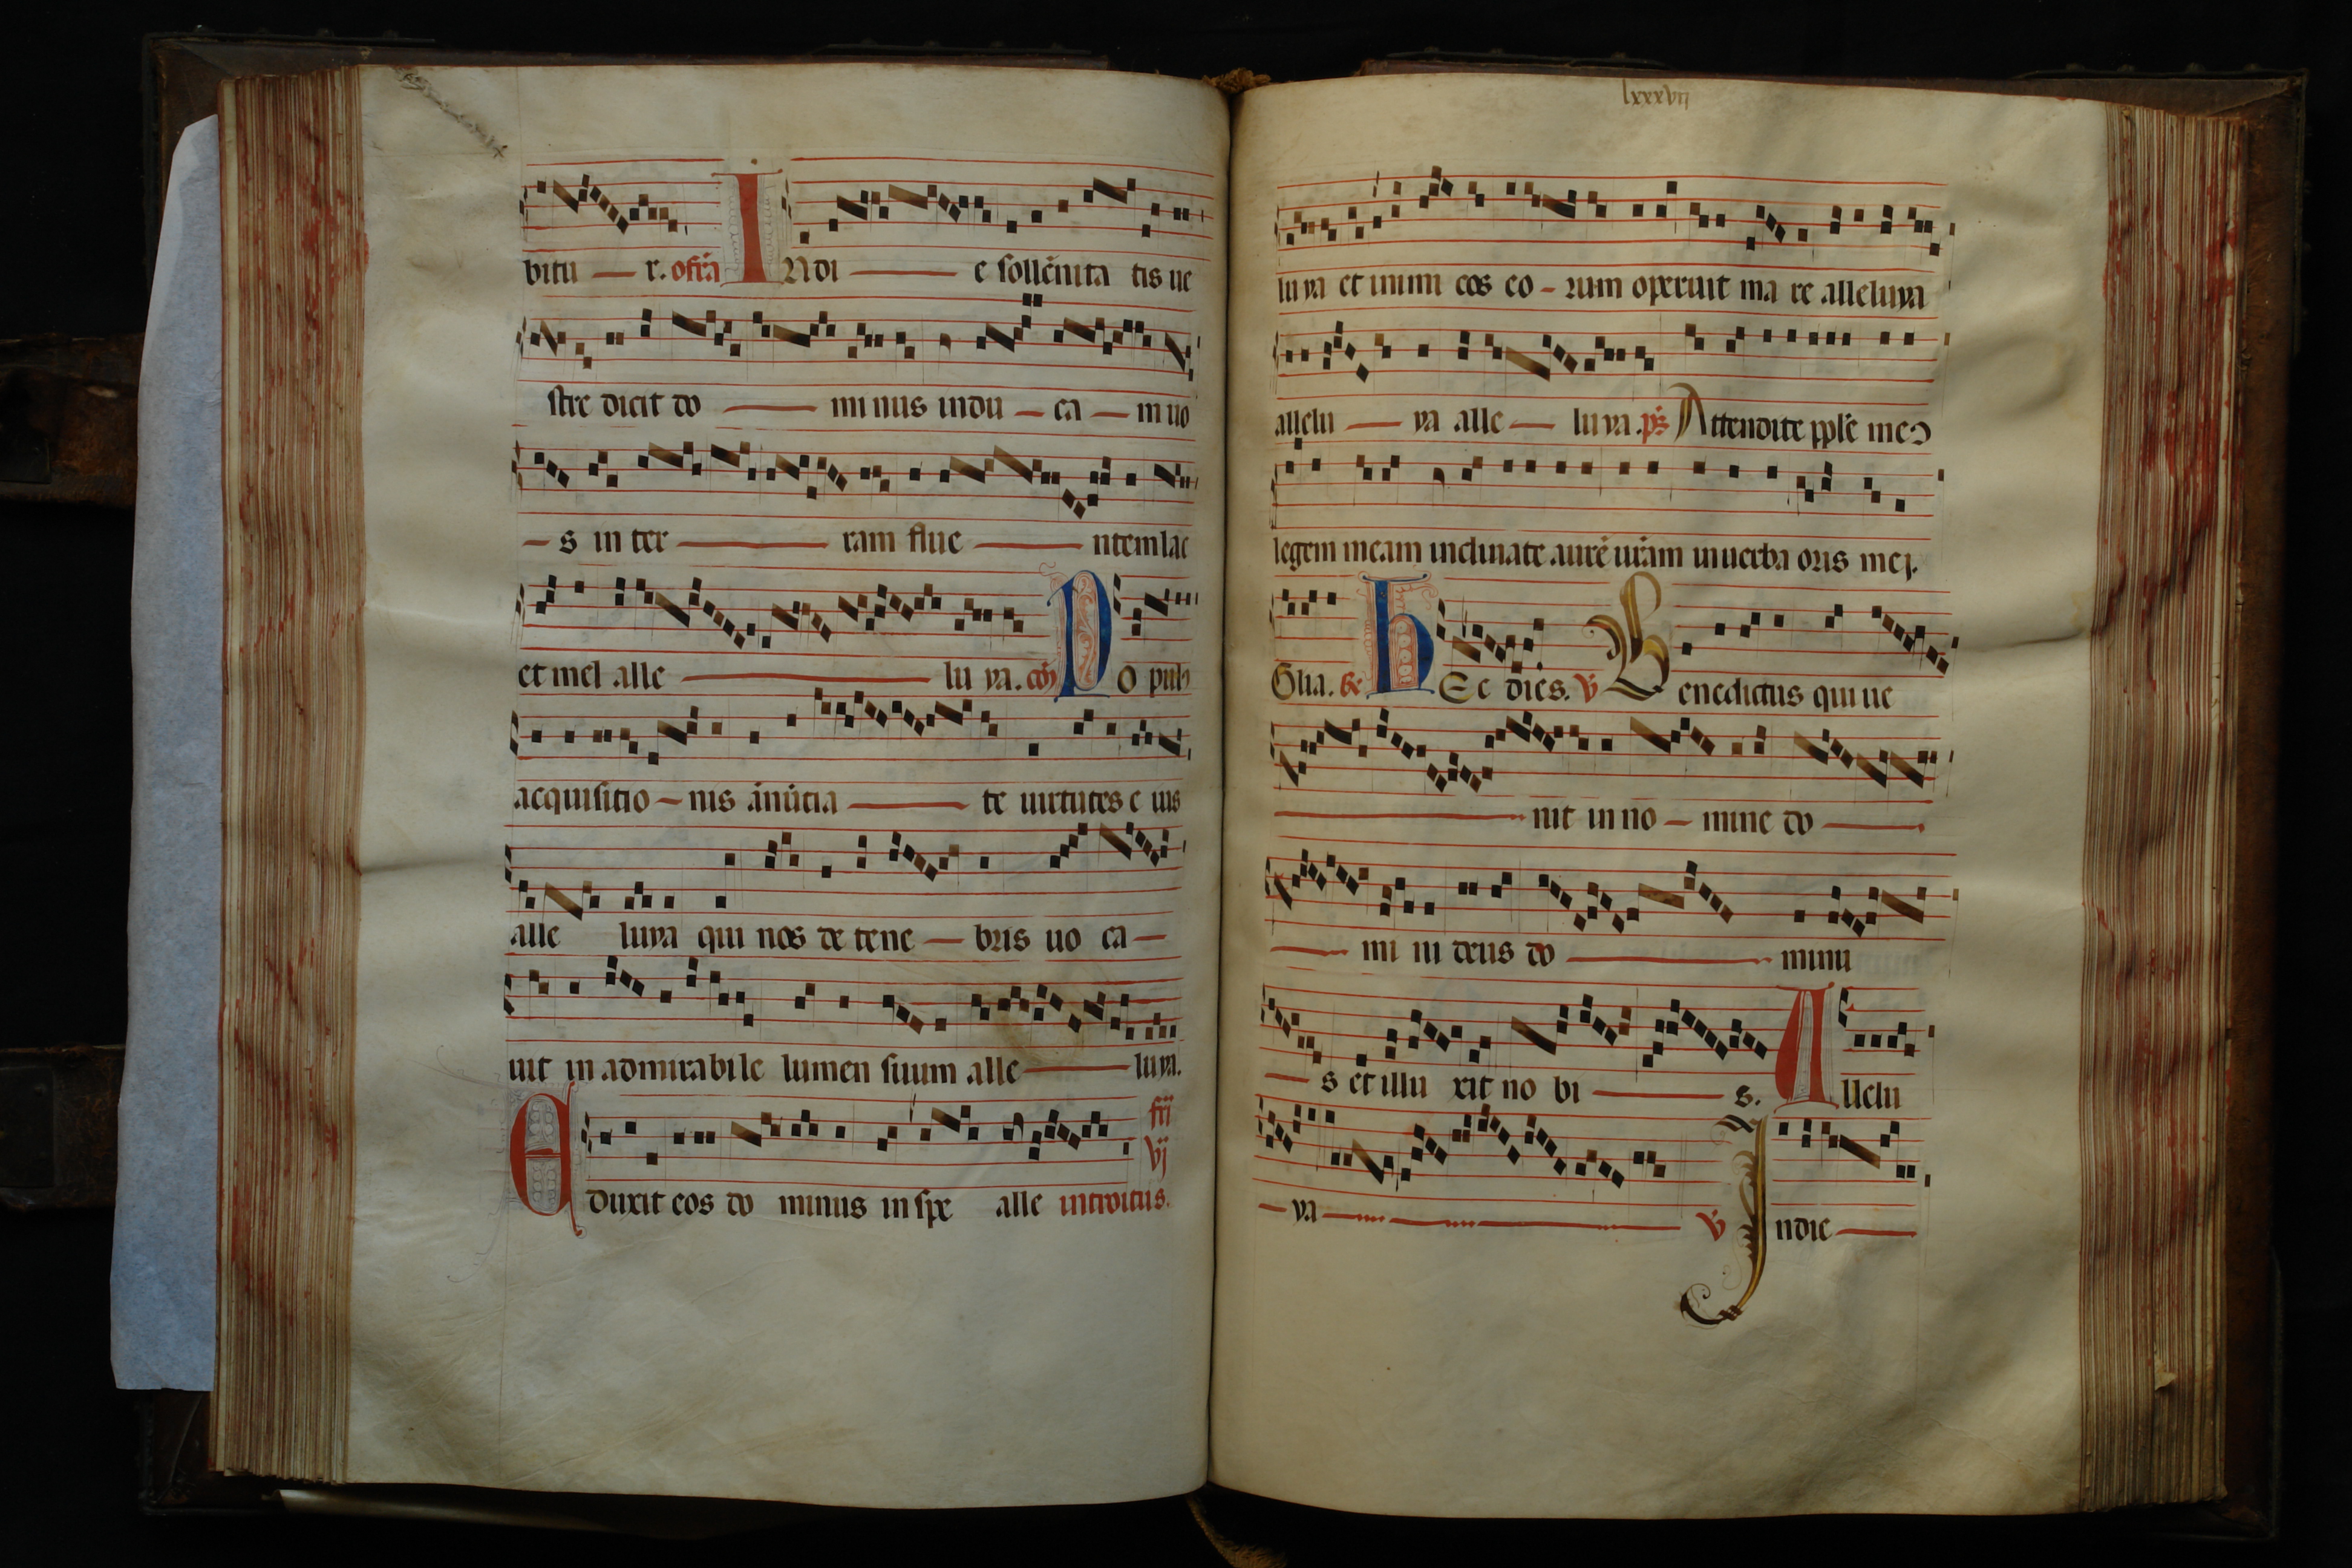 bitu — r. ofr̃a INdi — e sollẽnita tis ue
stre dicit do — mi nus indu — ca — m uo
— s in ter — ram flue — ntem lac
et mel alle — lu ya. cõ PO pul
acquisitio — nis ãnũtia — te uirtutes e ius
alle luya qui nos de tene — bris uo ca —
uit in admirabile lumen suum alle — luya.
Eduxit eos do minus in spe alle introitus. fr̃i vj
lxxxvij
luya et inimi cos eo — rum operuit ma re alleluya
allelu — ya alle — luya. ps̃ Attendite pple meɔ
legem meam inclinate aurẽ ur̃am in uerba oris mej.
Glia. Hec dies. ℣ Benedictus qui ue
— nit in no — mine do —
— mi ni deus do — minu
— s et illu xit no bi — s. Allelu
— ya — ℣ Indie —